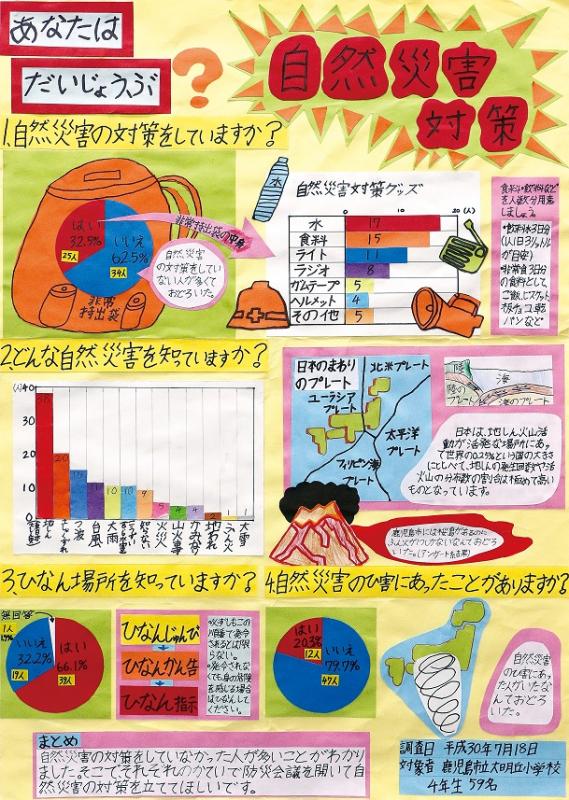 あなたは
だいじょうぶ
?
自然災害
対策
1.自然災害の対策をしていますか?
はい
32.5%
25人
いいえ
62.5%
34人
非常
持出袋
非常持出袋の中身
自然災害
の対策をして
いない人が多くて
おどろいた。
水
自然災害対策グッズ
0 10 20(人)
水 17
食料 15
ライト 11
ラジオ 8
ガムテープ 5
ヘルメット 4
その他 5
食料や飲料など
を人数分用意
しましょう
•飲料水3日分
(1人1日3リットル
が目安)
•非常食3日分
の食料として
ご飯、ビスケット、
板チョコ、乾
パンなど
2.どんな自然災害を知っていますか?
(人)
40
30
20
10
0
20
15
地しん
つ波
台風
大雨
火災
山火事
かみなり
地われ
ふん火
大雪
日本のまわり
のプレート
ユーラシア
プレート
北米プレート
太平洋
プレート
フィリピン海
プレート
陸
海
陸の
プレート
海のプレート
日本は、地しん火山活
動が活発な場所にあっ
て世界の0.25%という国の大きさ
にひしべて、地しんの発生回数や活
火山の分布数の割合は極めて高い
ものとなっています。
鹿児島市には桜島があるのに
おどろ
いた。(アンケート結果)
3.ひなん場所を知っていますか?
無回答
1人
いいえ
32.2%
19人
はい
66.1%
39人
ひなんじゅんび
ひなんかん告
ひなん指示
•必ずしもこの
順番で発令
されるとは限
らない。
•発令されなく
ても身の危険
を感じる場合
はひなんして
ください。
4.自然災害のひ害にあったことがありますか?
はい
20.3%
12人
いいえ
79.7%
47人
自然災害
のひ害にあっ
た人がいたな
んておどろ
いた。
まとめ
自然災害の対策をしていなかった人が多いことがわかり
ました。そこで、それぞれのかていで防災会議を開いて自
然災害の対策を立ててほしいです。
調査日 平成30年7月18日
対象者 鹿児島市立大明丘小学校
4年生 59名